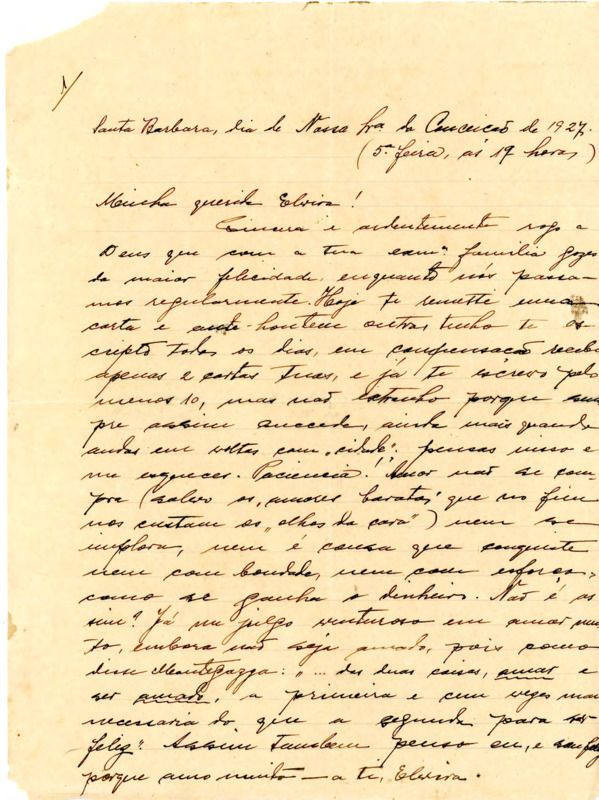 1/
Santa Barbara, dia de Nossa Sra. da Conceicão de 1927.
(5ª feira, ás 19 horas)
Minha querida Elvira!
Sincera e ardentemente rogo a
Deus que com a tua exmª familia gozes
da maior felicidade, enquanto nós passa-
mos regularmente. Hoje te remetti uma
carta e ante-hontem outra, tenho te es-
cripto todos os dias, em compensacão recebi
apenas 2 cartas tuas, e já te escrevo pelo
menos 10, mas não estranho porque sem
pre assim succede, ainda mais quando
andas em voltas com „cidade": pensas nisso e
me esqueces. Paciencia! Amor não se com-
pra (salvo os „amores baratos" que no fim
nos custam os „olhos da cara") nem se
implora, nem é cousa que conquiste
nem com bondade, nem com esforço,
como se ganha o dinheiro. Não é as
sim? Já me julgo venturoso em amar mui
to, embora não seja amado, pois como
disse Mantegazza: „... das duas coisas, amar e
ser amado, a primeira e cem vezes mais
necessaria do que a segunda para ser
feliz". Assim tambem penso eu, e sou feliz
porque amo muito — a ti, Elvira.